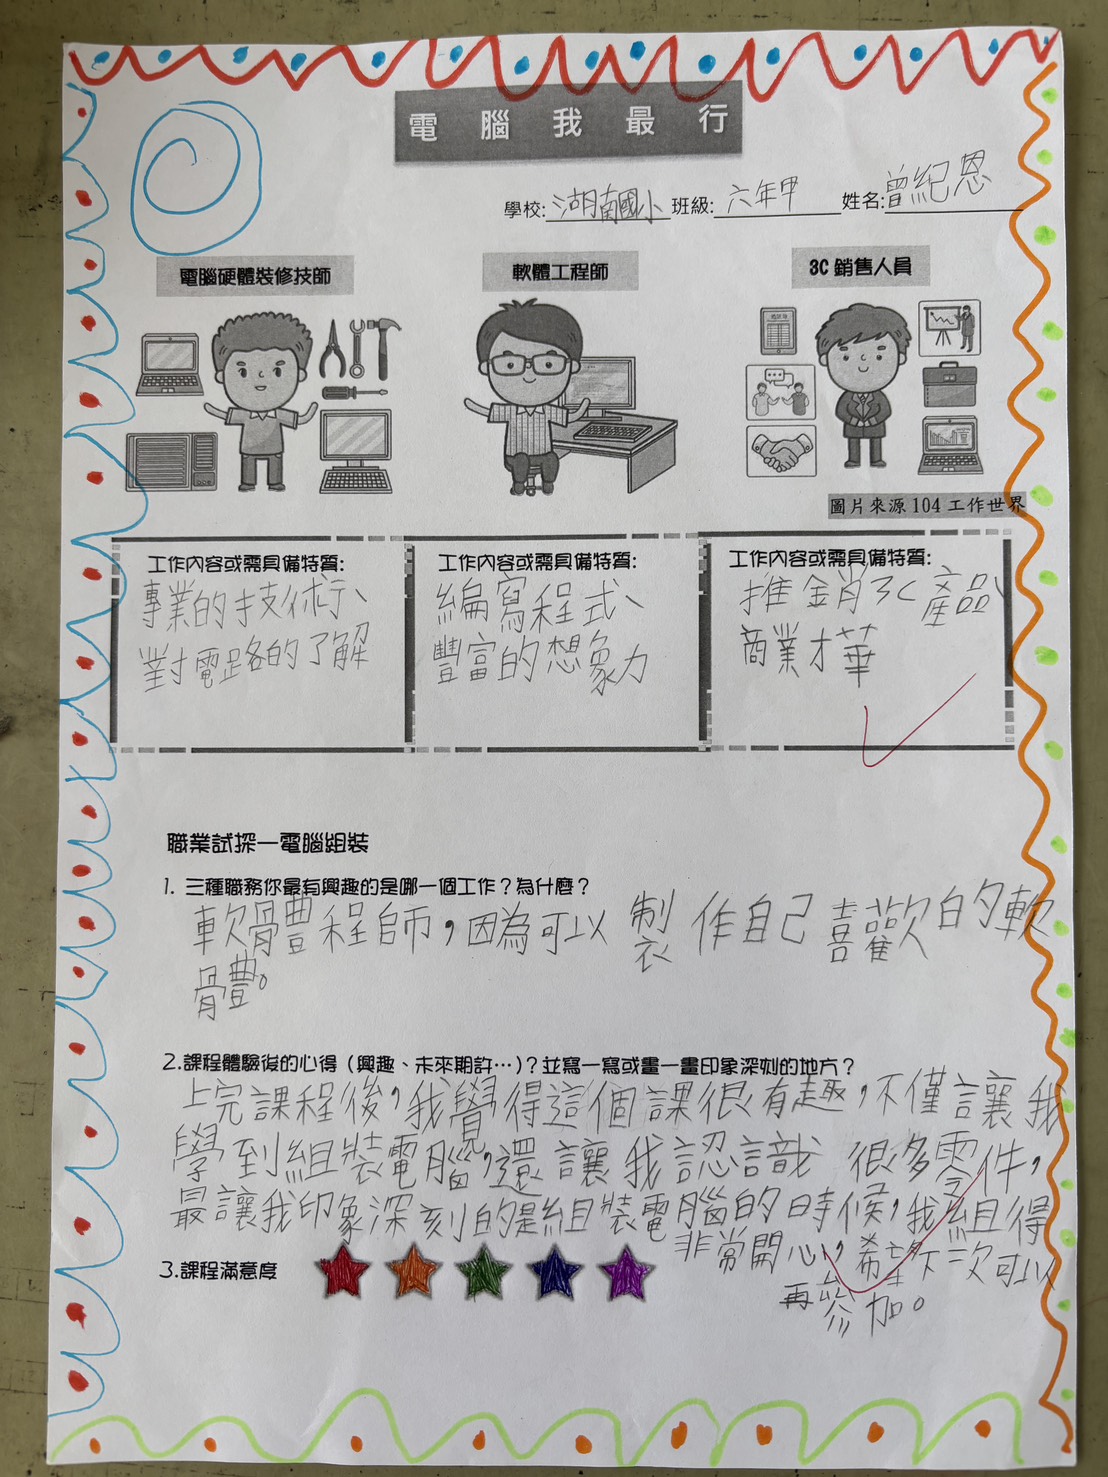 電腦我最行
學校:湖南國小 班級:六年甲 姓名:曾紀恩
電腦硬體裝修技師
軟體工程師
3C 銷售人員
圖片來源 104 工作世界
工作內容或需具備特質:
專業的技術、
對電路的了解
工作內容或需具備特質:
編寫程式、
豐富的想象力
工作內容或需具備特質:
推銷3C產品、
商業才華
職業試探—電腦組裝
1. 三種職務你最有興趣的是哪一個工作？為什麼？
軟體程師，因為可以製作自己喜歡的軟
體。
2.課程體驗後的心得（興趣、未來期許…）？並寫一寫或畫一畫印象深刻的地方？
上完課程後，我覺得這個課很有趣，不僅讓我
學到組裝電腦，還讓我認識很多零件，
最讓我印象深刻的是組裝電腦的時候，我組得
非常開心，希望下次可以
再參加。
3.課程滿意度